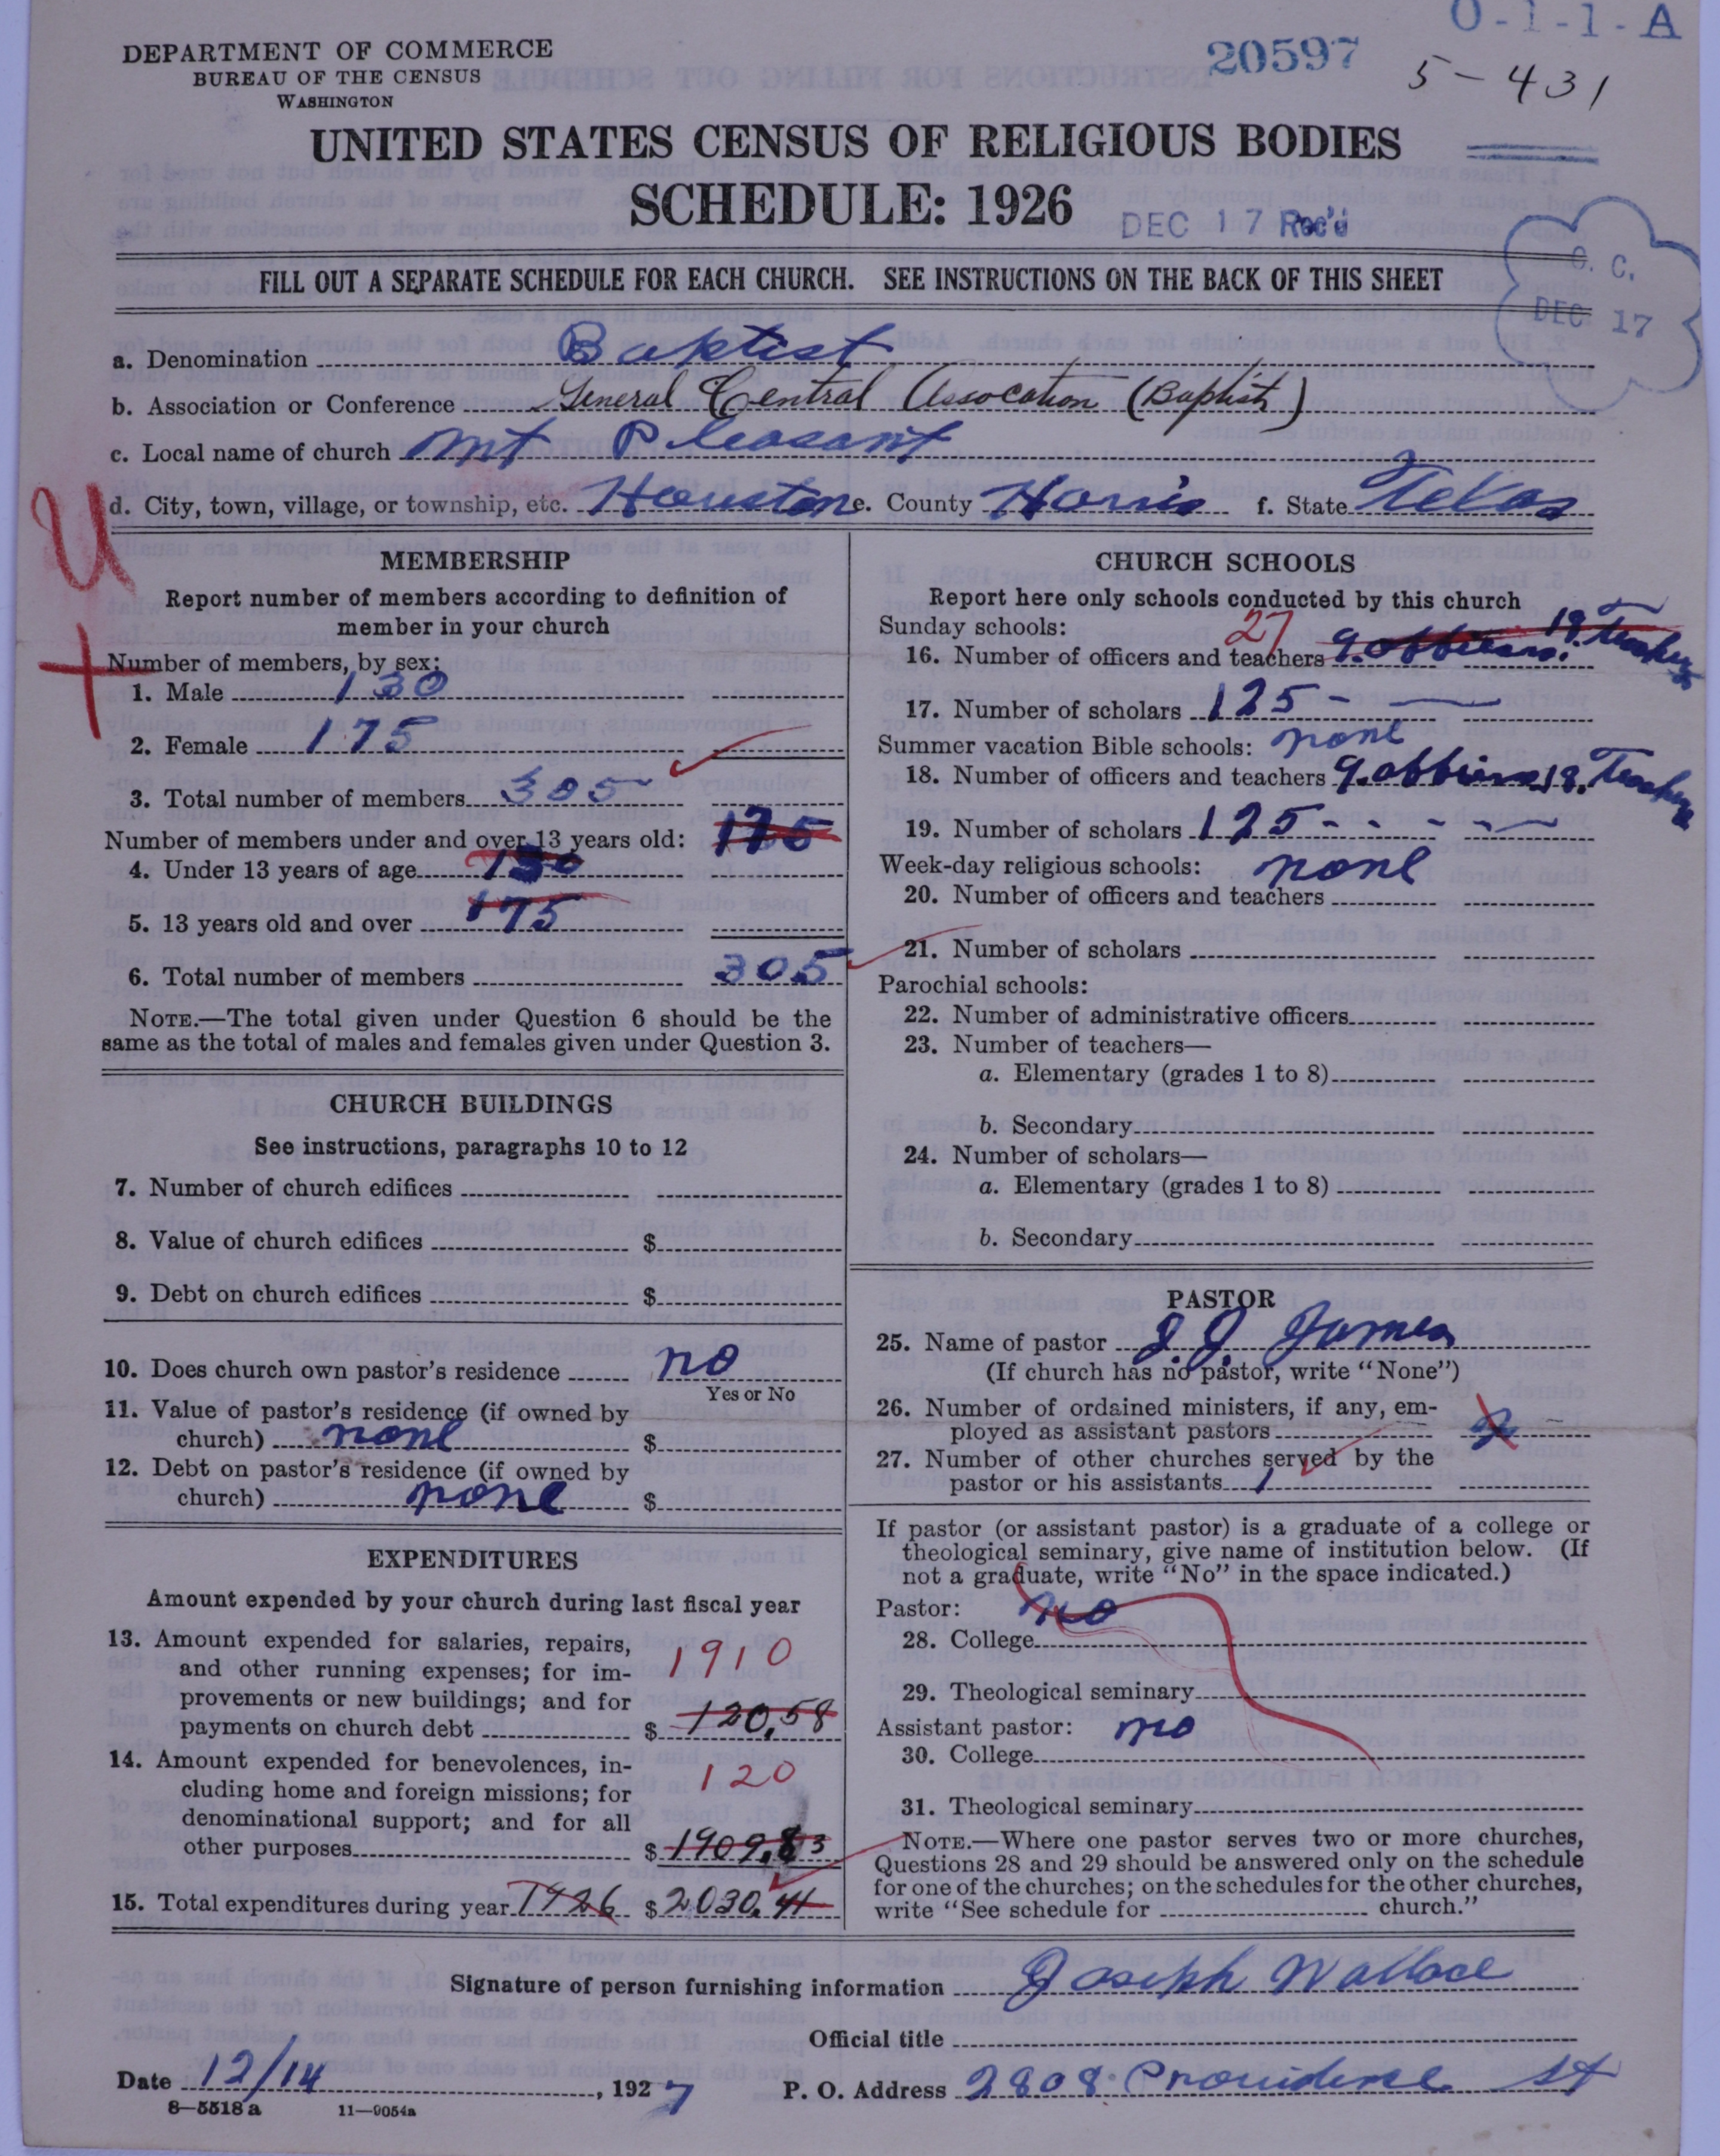 O-1-1-A
DEPARTMENT OF COMMERCE
BUREAU OF THE CENSUS
WASHINGTON
20597
5-431
UNITED STATES CENSUS OF RELIGIOUS BODIES
SCHEDULE: 1926
DEC 17 Rec'd
C. C.
DEC 17
FILL OUT A SEPARATE SCHEDULE FOR EACH CHURCH. SEE INSTRUCTIONS ON THE BACK OF THIS SHEET
a. Denomination Baptist
b. Association or Conference General Central Assocation (Baptist)
c. Local name of church Mt Pleasant
d. City, town, village, or township, etc. Houston e. County Harris f. State Texas
MEMBERSHIP
Report number of members according to definition of
member in your church
Number of members, by sex:
1. Male 130
2. Female 175
3. Total number of members 305
Number of members under and over 13 years old: 175
4. Under 13 years of age 130
5. 13 years old and over 175
6. Total number of members 305
NOTE.—The total given under Question 6 should be the
same as the total of males and females given under Question 3.
CHURCH BUILDINGS
See instructions, paragraphs 10 to 12
7. Number of church edifices
8. Value of church edifices $
9. Debt on church edifices $
10. Does church own pastor's residence no
Yes or No
11. Value of pastor's residence (if owned by
church) none $
12. Debt on pastor's residence (if owned by
church) none $
EXPENDITURES
Amount expended by your church during last fiscal year
13. Amount expended for salaries, repairs,
and other running expenses; for im- 1910
provements or new buildings; and for
payments on church debt $ 120,58
14. Amount expended for benevolences, in-
cluding home and foreign missions; for 120
denominational support; and for all
other purposes $ 1909,83
15. Total expenditures during year 1926 $ 2030.41
CHURCH SCHOOLS
Report here only schools conducted by this church
Sunday schools: 27
16. Number of officers and teachers 9. officers. 18. Teachers
17. Number of scholars 125
Summer vacation Bible schools: none
18. Number of officers and teachers 9. officers 18. Teachers
19. Number of scholars 125
Week-day religious schools: none
20. Number of officers and teachers
21. Number of scholars
Parochial schools:
22. Number of administrative officers
23. Number of teachers—
a. Elementary (grades 1 to 8)
b. Secondary
24. Number of scholars—
a. Elementary (grades 1 to 8)
b. Secondary
PASTOR
25. Name of pastor J. J. James
(If church has no pastor, write "None")
26. Number of ordained ministers, if any, em-
ployed as assistant pastors 2
27. Number of other churches served by the
pastor or his assistants 1
If pastor (or assistant pastor) is a graduate of a college or
theological seminary, give name of institution below. (If
not a graduate, write "No" in the space indicated.)
Pastor: no
28. College
29. Theological seminary
Assistant pastor: no
30. College
31. Theological seminary
NOTE.—Where one pastor serves two or more churches,
Questions 28 and 29 should be answered only on the schedule
for one of the churches; on the schedules for the other churches,
write "See schedule for church."
Signature of person furnishing information Joseph Wallace
Official title
Date 12/14, 1927 P. O. Address 2808 Providence St
8—5518 a 11—9054a